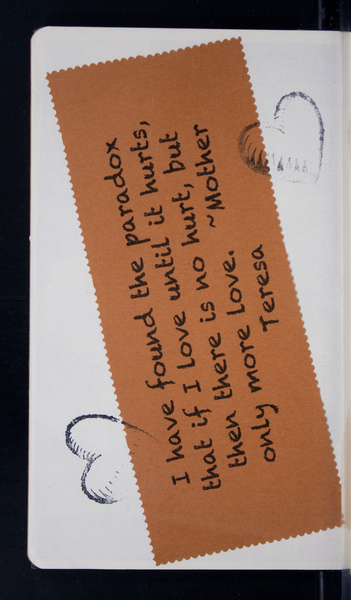 I have found the paradox
that if I love until it hurts,
then there is no hurt, but
only more love. ~Mother
Teresa